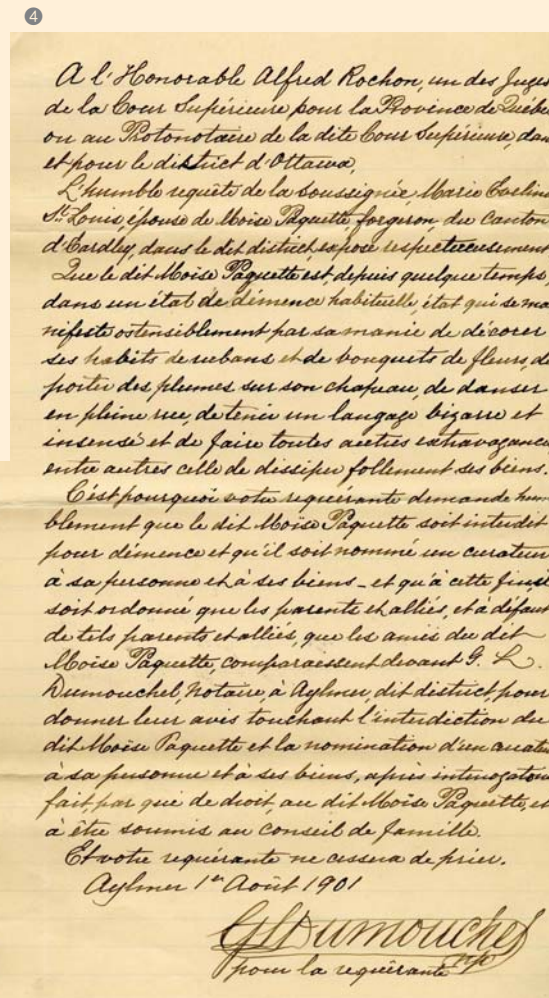 4
A l'Honorable Alfred Rochon, un des Juges
de la Cour Supérieure pour la Province de Québe
ou au Protonotaire de la dite Cour Supérieure, dan
et pour le district d'Ottawa,
L'humble requête de la soussignée, Marie Eveline
St. Louis, épouse de Moïse Paquette, forgeron, du Canton
d'Eardley, dans le dit district, expose respectueusement
Que le dit Moïse Paquette est, depuis quelque temps,
dans un état de démence habituelle, état qui se ma
nifeste ostensiblement par sa manie de décorer
ses habits de rubans et de bouquets de fleurs, de
porter des plumes sur son chapeau, de danser
en pleine rue, de tenir un langage bizarre et
insensé et de faire toutes autres extravagance
entre autres celle de dissiper follement ses biens.
C'est pourquoi votre requérante demande hum
blement que le dit Moïse Paquette soit interdit
pour démence et qu'il soit nommé un curateur
à sa personne et à ses biens - et qu'à cette fin, il
soit ordonné que les parents et alliés, et à défaut
de tels parents et alliés, que les amis du dit
Moïse Paquette, comparaissent devant G. L.
Dumouchel, Notaire, à Aylmer, dit district, pour
donner leur avis touchant l'interdiction du
dit Moïse Paquette et la nomination d'un curateu
à sa personne et à ses biens, après interrogatoire
fait par qui de droit, au dit Moïse Paquette, et
à être soumis au conseil de famille.
Et votre requérante ne cessera de prier.
Aylmer 1er Août 1901
G L Dumouchel
np
pour la requérante